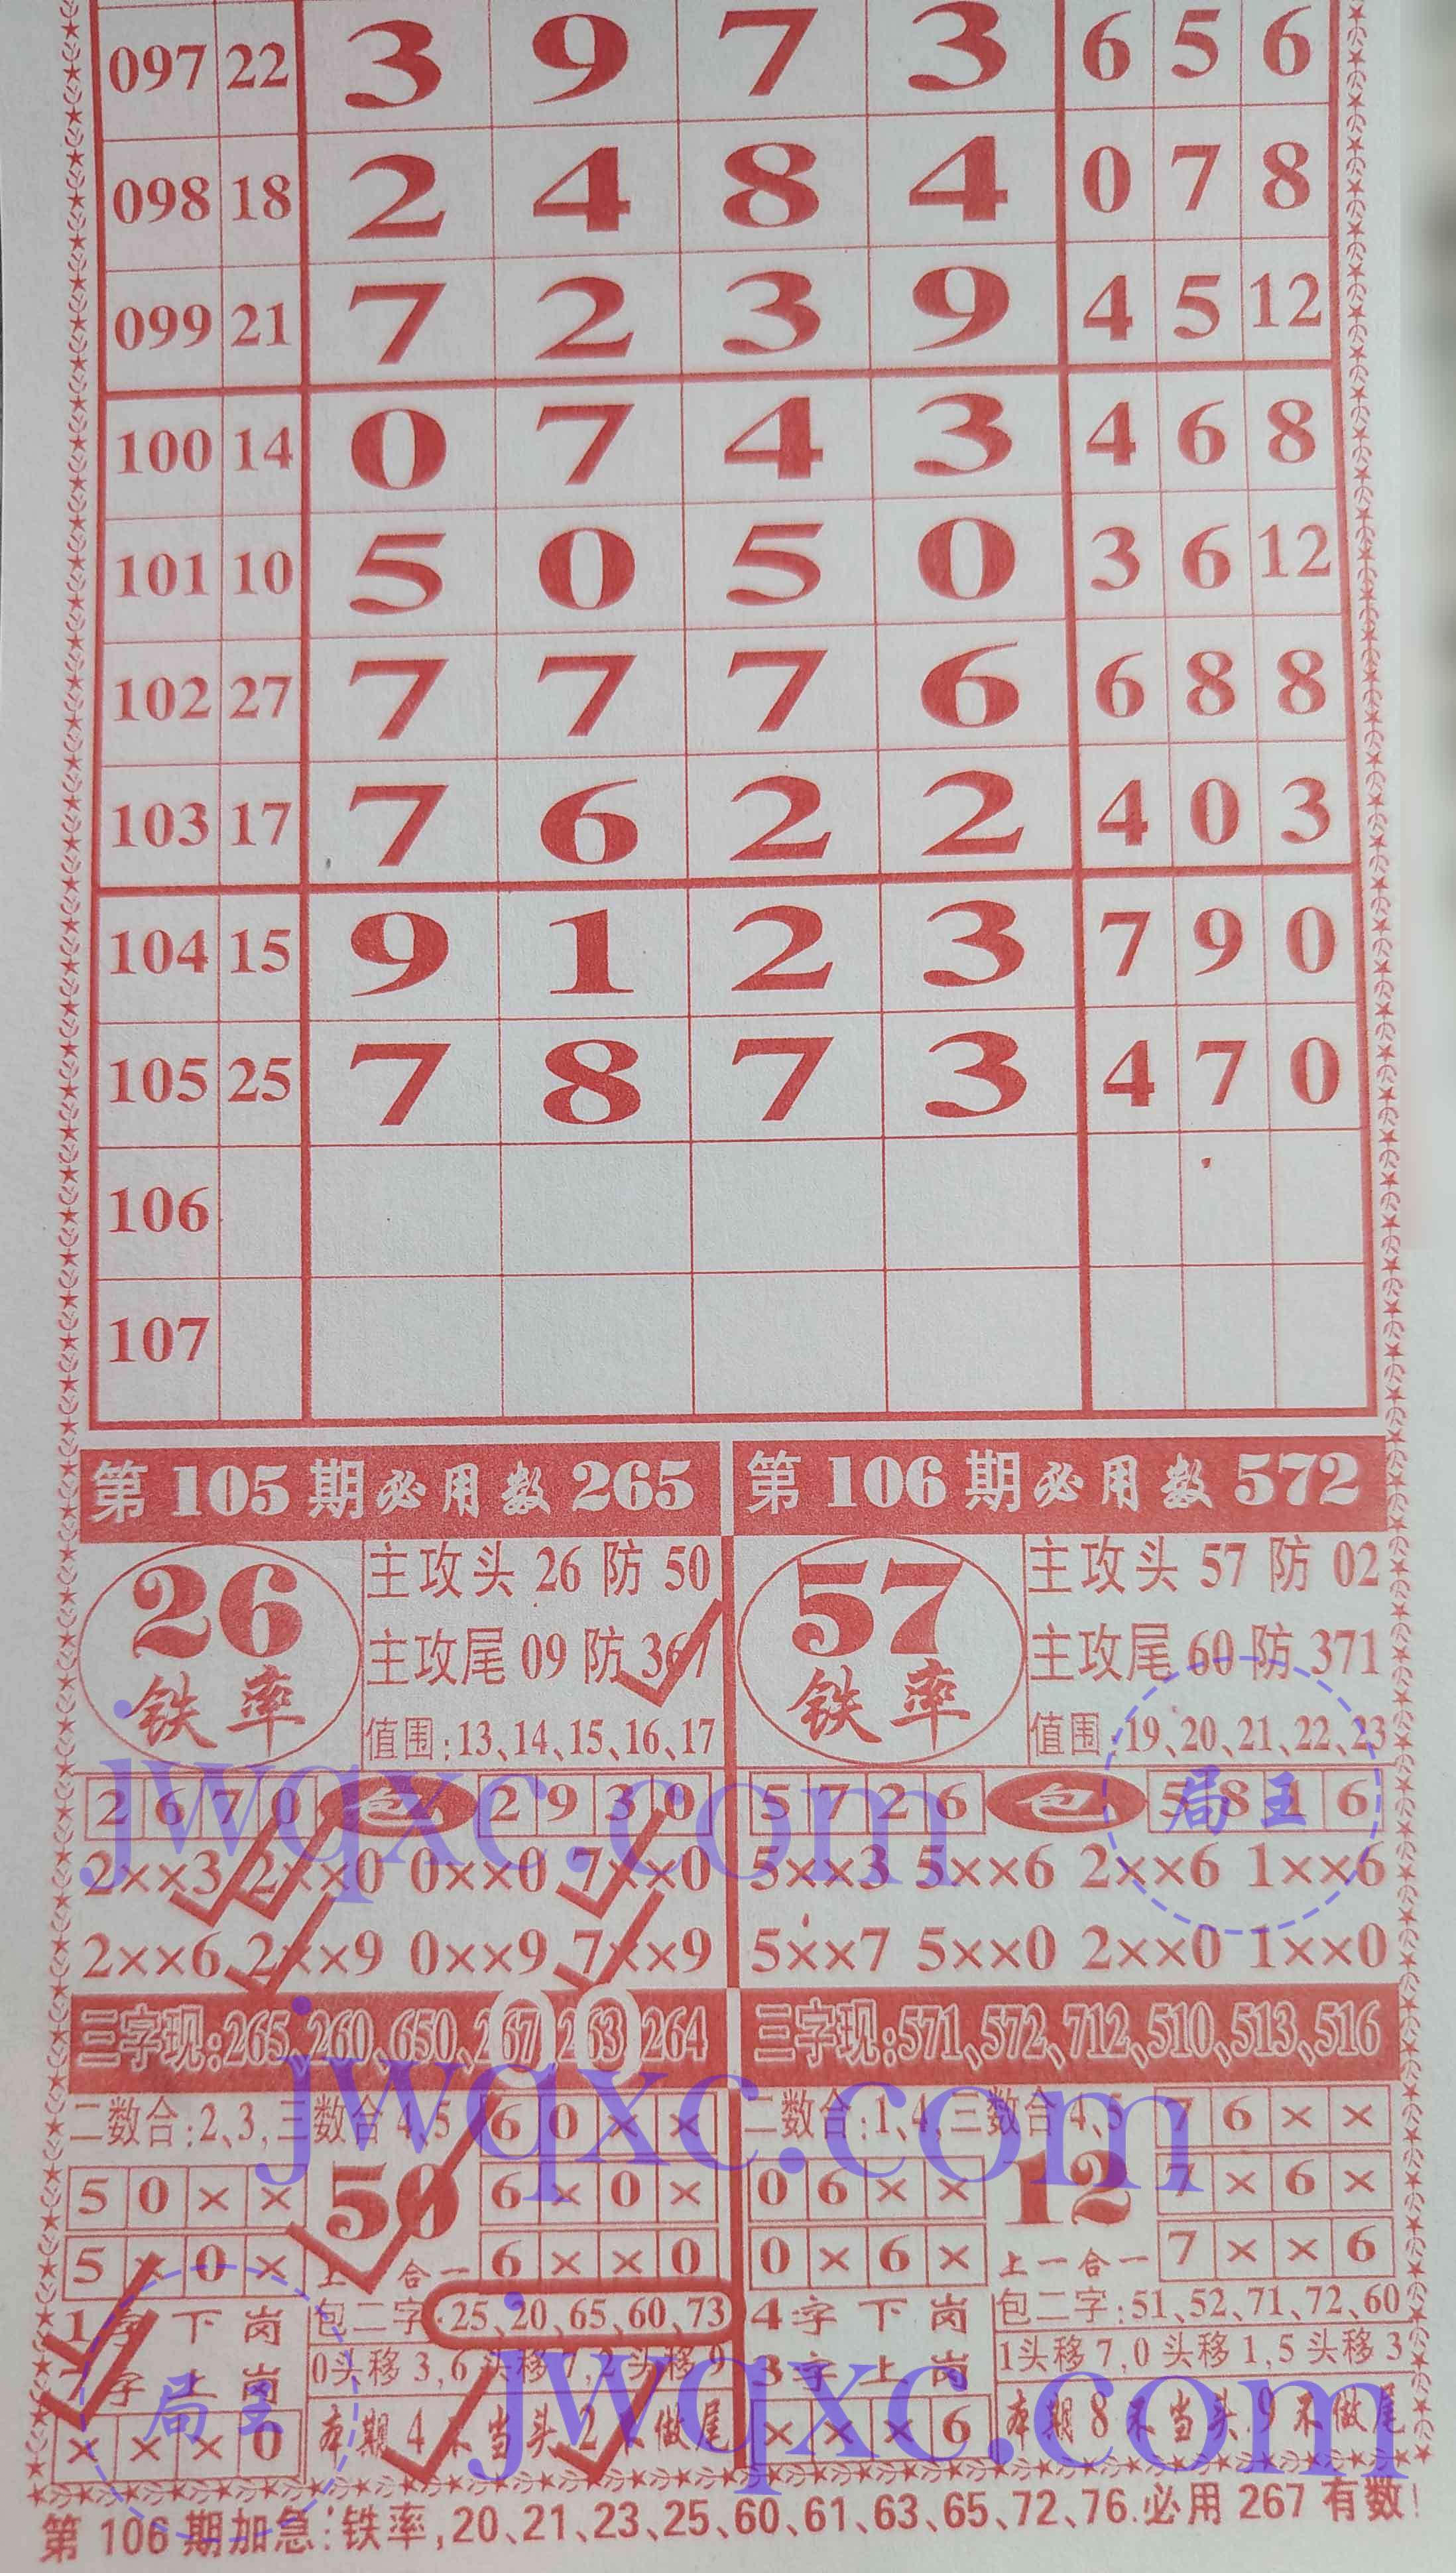 097 22 3 9 7 3 6 5 6
098 18 2 4 8 4 0 7 8
099 21 7 2 3 9 4 5 12
100 14 0 7 4 3 4 6 8
101 10 5 0 5 0 3 6 12
102 27 7 7 7 6 6 8 8
103 17 7 6 2 2 4 0 3
104 15 9 1 2 3 7 9 0
105 25 7 8 7 3 4 7 0
106
107
第105期必用数265
26
铁率
主攻头 26 防 50
主攻尾 09 防 361
值围:13、14、15、16、17
2 6 7 0 包 2 9 3 0
2××3 2××0 0××0 7××0
2××6 2××9 0××9 7××9
三字现:265、260、650、267、263、264
二数合:2、3,三数合4、5
6 0 × ×
5 0 × × 50 6 × 0 ×
5 × 0 × 上一合一 6 × × 0
1字下岗 包二字:25、20、65、60、73
7字上岗 0头移3,6头移7,2头移9
× × × 0 本期4不当头2不做尾
第106期必用数572
57
铁率
主攻头 57 防 02
主攻尾 60 防 371
值围:19、20、21、22、23
5 7 2 6 包 5 8 1 6
5××3 5××6 2××6 1××6
5××7 5××0 2××0 1××0
三字现:571、572、712、510、513、516
二数合:1、4,三数合4、5
7 6 × ×
0 6 × × 12 7 × 6 ×
0 × 6 × 上一合一 7 × × 6
4字下岗 包二字:51、52、71、72、60
3字上岗 1头移7,0头移1,5头移3
× × × 6 本期8不当头9不做尾
第106期加急:铁率,20、21、23、25、60、61、63、65、72、76.必用267有数!
jwqxc.com
局王
jwqxc.com
局王
jwqxc.com